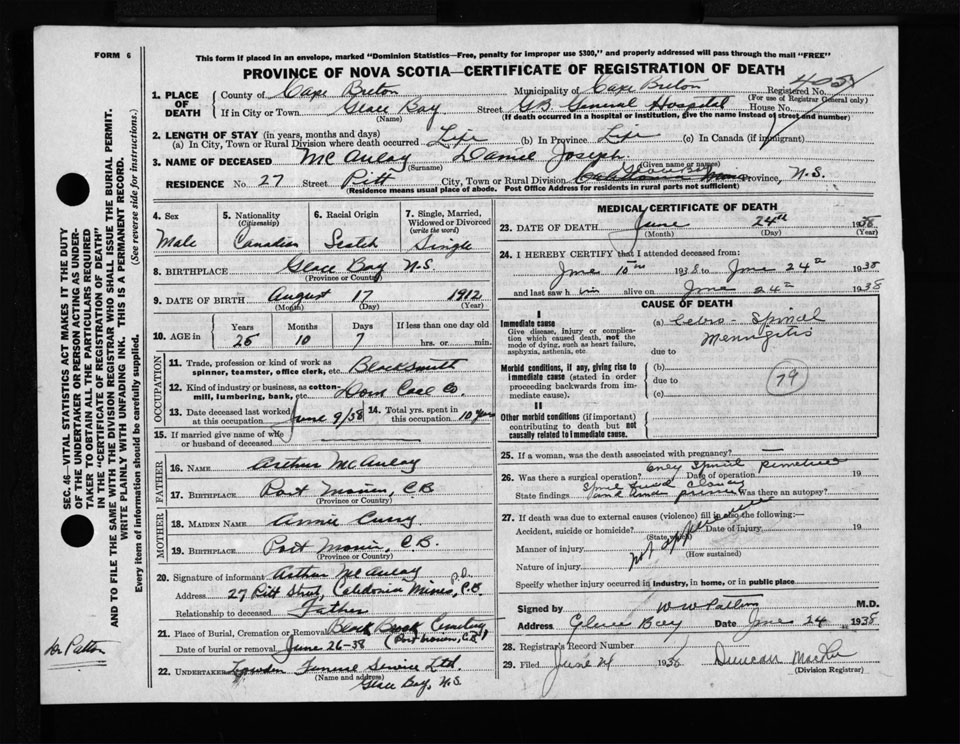 FORM 6
This form if placed in an envelope, marked "Dominion Statistics—Free, penalty for improper use $300," and properly addressed will pass through the mail "FREE"
PROVINCE OF NOVA SCOTIA—CERTIFICATE OF REGISTRATION OF DEATH
1. PLACE OF DEATH
County of Cape Breton Municipality of Cape Breton Registered No.
(For use of Registrar General only)
If in City or Town Glace Bay Street GB General Hospital House No.
(Name) (If death occurred in a hospital or institution, give the name instead of street and number)
2. LENGTH OF STAY (in years, months and days)
(a) In City, Town or Rural Division where death occurred Life (b) In Province Life (c) In Canada (if immigrant)
3. NAME OF DECEASED McAulay Daniel Joseph
(Surname) (Given name or names)
Glace Bay
RESIDENCE No. 27 Street Pitt City, Town or Rural Division Caledonia Mines Province, N.S.
(Residence means usual place of abode. Post Office Address for residents in rural parts not sufficient)
4. Sex
Male
5. Nationality
(Citizenship)
Canadian
6. Racial Origin
Scotch
7. Single, Married, Widowed or Divorced
(write the word)
Single
8. BIRTHPLACE Glace Bay N.S.
(Province or Country)
9. DATE OF BIRTH August 17 1912
(Month) (Day) (Year)
10. AGE in Years Months Days If less than one day old
25 10 7 hrs. or min.
OCCUPATION
11. Trade, profession or kind of work as spinner, teamster, office clerk, etc. Blacksmith
12. Kind of industry or business, as cotton-mill, lumbering, bank, etc. Dom Coal Co.
13. Date deceased last worked at this occupation June 9/38 14. Total yrs. spent in this occupation 10 years
15. If married give name of wife or husband of deceased
FATHER
16. NAME Arthur McAulay
17. BIRTHPLACE Port Morien, C.B
(Province or Country)
MOTHER
18. MAIDEN NAME Annie Curry
19. BIRTHPLACE Port Morien, C.B.
(Province or Country)
20. Signature of informant Arthur McAulay
Address 27 Pitt Street, Caledonia Mines, C.B.
Relationship to deceased Father
21. Place of Burial, Cremation or Removal Black Brook Cemetery
(Port Morien, C.B.)
Date of burial or removal June 26-38
22. UNDERTAKER Lowden Funeral Service Ltd.
(Name and address)
Glace Bay, N.S.
MEDICAL CERTIFICATE OF DEATH
23. DATE OF DEATH June 24th 1938
(Month) (Day) (Year)
24. I HEREBY CERTIFY that I attended deceased from:
June 10th 1938 to June 24th 1938
and last saw him alive on June 24th 1938
CAUSE OF DEATH
I
Immediate cause
Give disease, injury or complication which caused death, not the mode of dying, such as heart failure, asphyxia, asthenia, etc.
(a) Cebro-Spinal Meningitis
due to
Morbid conditions, if any, giving rise to immediate cause (stated in order proceeding backwards from immediate cause).
(b)
due to
(c)
79
II
Other morbid conditions (if important) contributing to death but not causally related to immediate cause.
25. If a woman, was the death associated with pregnancy?
26. Was there a surgical operation? only spinal puncture Date of operation 19
State findings Spinal fluid cloudy and under pressure Was there an autopsy?
27. If death was due to external causes (violence) fill in also the following:—
Accident, suicide or homicide? Date of injury 19
(State which)
Manner of injury
(How sustained)
Nature of injury
Specify whether injury occurred in industry, in home, or in public place
Signed by W W Patton M.D.
Address Glace Bay Date June 24 1938
28. Registrar's Record Number
29. Filed June 24 1938 Duncan
(Division Registrar)
SEC. 46—VITAL STATISTICS ACT MAKES IT THE DUTY OF THE UNDERTAKER OR PERSON ACTING AS UNDERTAKER TO OBTAIN ALL THE PARTICULARS REQUIRED IN THE "CERTIFICATE OF REGISTRATION OF DEATH"
AND TO FILE THE SAME WITH THE DIVISION REGISTRAR WHO SHALL ISSUE THE BURIAL PERMIT.
WRITE PLAINLY WITH UNFADING INK. THIS IS A PERMANENT RECORD.
Every item of information should be carefully supplied. (See reverse side for instructions.)
Dr Patton